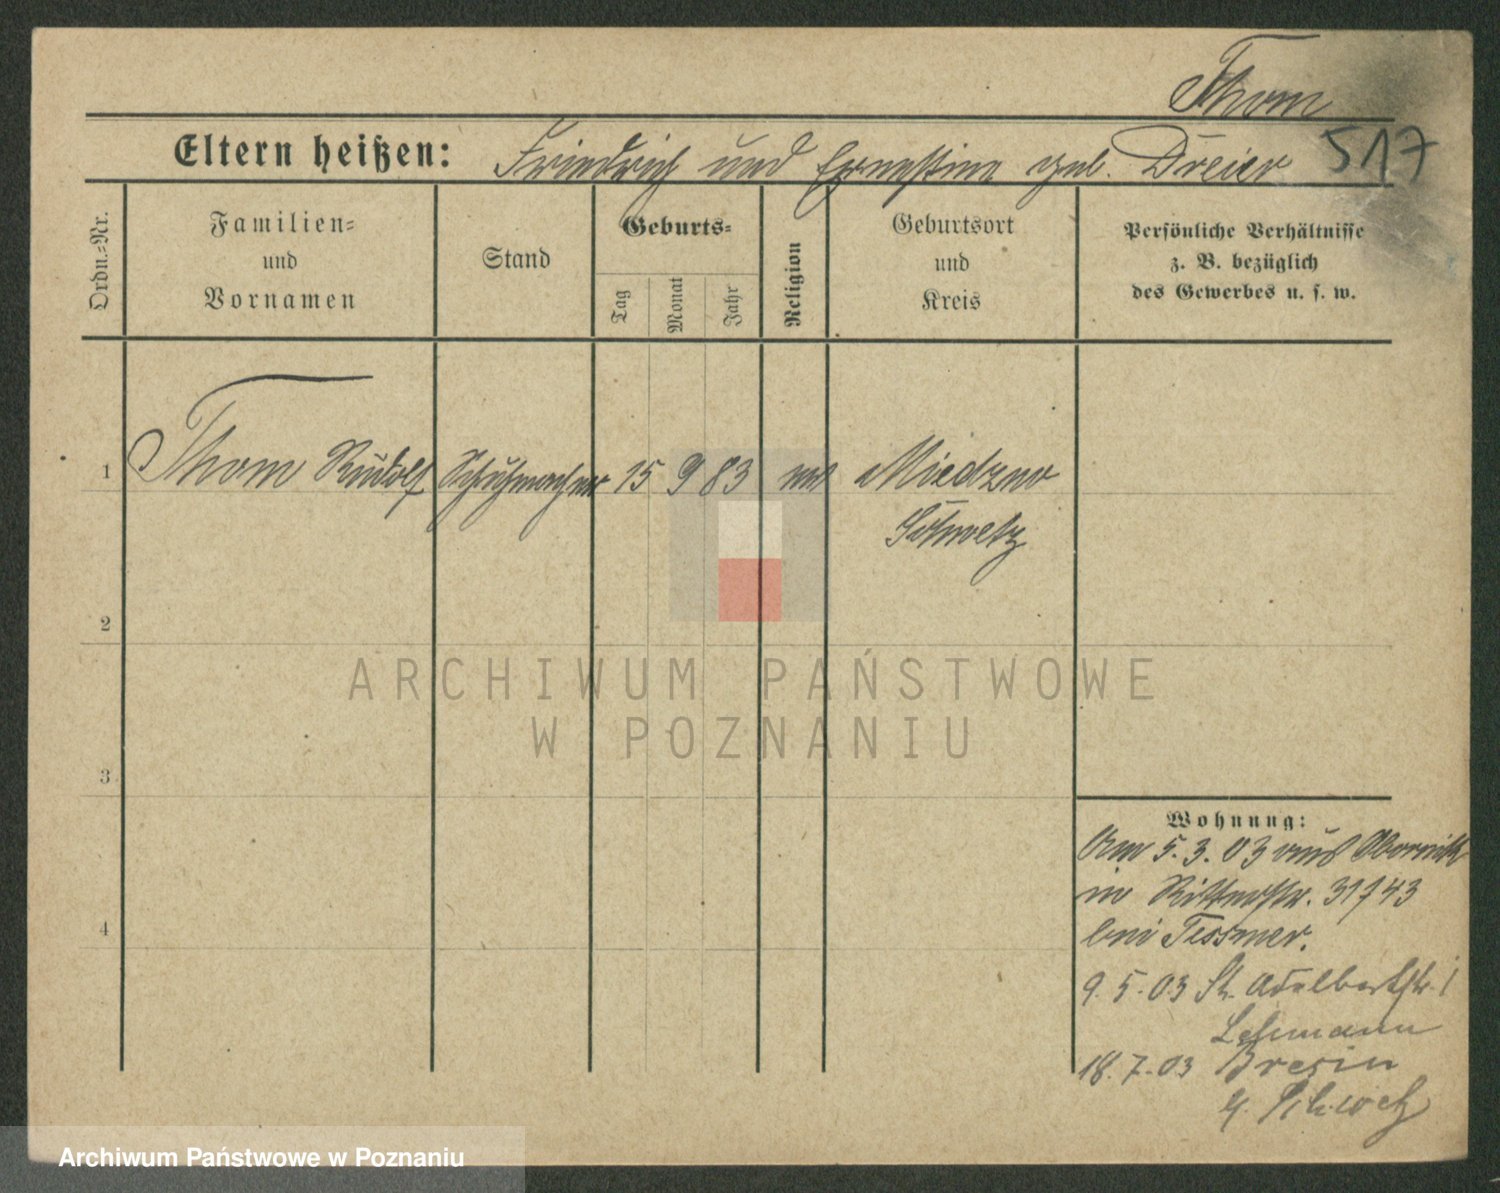 Thom
Eltern heißen: Friedrich und Ernestine geb. Dreier 517
Ordn.-Nr.
Familien-
und
Vornamen
Stand
Geburts-
Tag
Monat
Jahr
Religion
Geburtsort
und
Kreis
Persönliche Verhältnisse
z. B. bezüglich
des Gewerbes u. s. w.
1 Thom Rudolf Schuhmacher 15 9 83 Miedzno
Schwetz
2
3
4
Wohnung:
Am 5.3.03 aus Obornik
in Ritterstr. 31/43
bei Tessmer.
9.5.03 St. Adalbertstr. 1
Lehmann
18.7.03 Bresin
Kr. Schwetz
ARCHIWUM PAŃSTWOWE
W POZNANIU
Archiwum Państwowe w Poznaniu